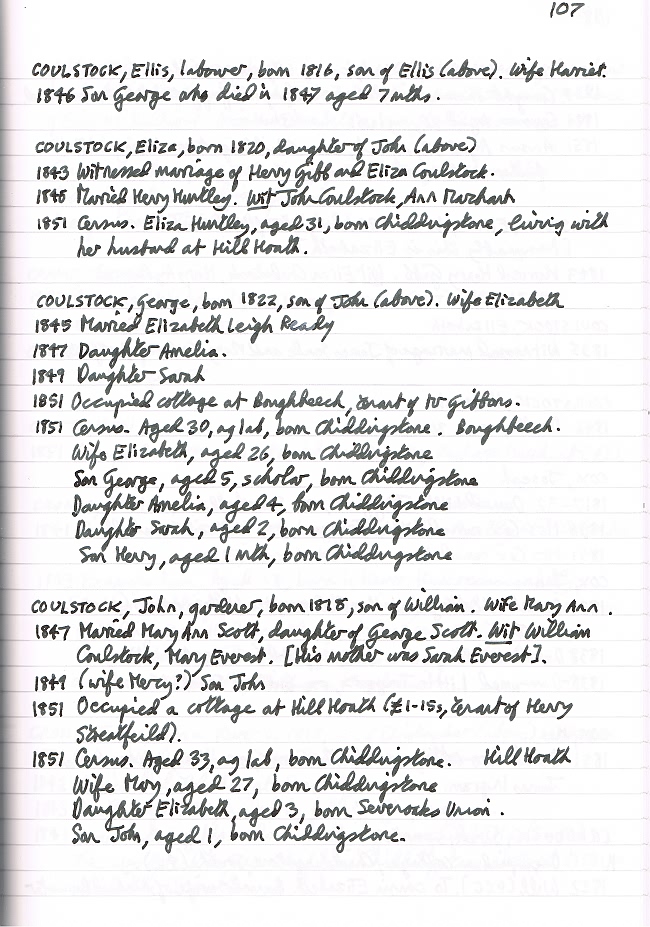 107
COULSTOCK, Ellis, labourer, born 1816, son of Ellis (above). Wife Harriet.
1846 Son George who died in 1847 aged 7 mths.
COULSTOCK, Eliza, born 1820, daughter of John (above)
1843 Witnessed marriage of Henry Gibb and Eliza Coulstock.
1846 Married Henry Huntley. Wit John Coulstock, Ann Marchant
1851 Census. Eliza Huntley, aged 31, born Chiddingstone, living with
her husband at Hill Hoath.
COULSTOCK, George, born 1822, son of John (above). Wife Elizabeth
1845 Married Elizabeth Leigh Ready
1847 Daughter Amelia.
1849 Daughter Sarah
1851 Occupied cottage at Boughbeech, tenant of W Gibbons.
1851 Census. Aged 30, ag lab, born Chiddingstone. Boughbeech.
Wife Elizabeth, aged 26, born Chiddingstone
Son George, aged 5, scholar, born Chiddingstone
Daughter Amelia, aged 4, born Chiddingstone
Daughter Sarah, aged 2, born Chiddingstone
Son Henry, aged 1 mth, born Chiddingstone
COULSTOCK, John, gardener, born 1818, son of William. Wife Mary Ann.
1847 Married Mary Ann Scott, daughter of George Scott. Wit William
Coulstock, Mary Everest. [His mother was Sarah Everest].
1849 (wife Mercy?) Son John
1851 Occupied a cottage at Hill Hoath (£1-15s, tenant of Henry
Streatfeild).
1851 Census. Aged 33, ag lab, born Chiddingstone. Hill Hoath
Wife Mary, aged 27, born Chiddingstone
Daughter Elizabeth, aged 3, born Sevenoaks Union.
Son John, aged 1, born Chiddingstone.